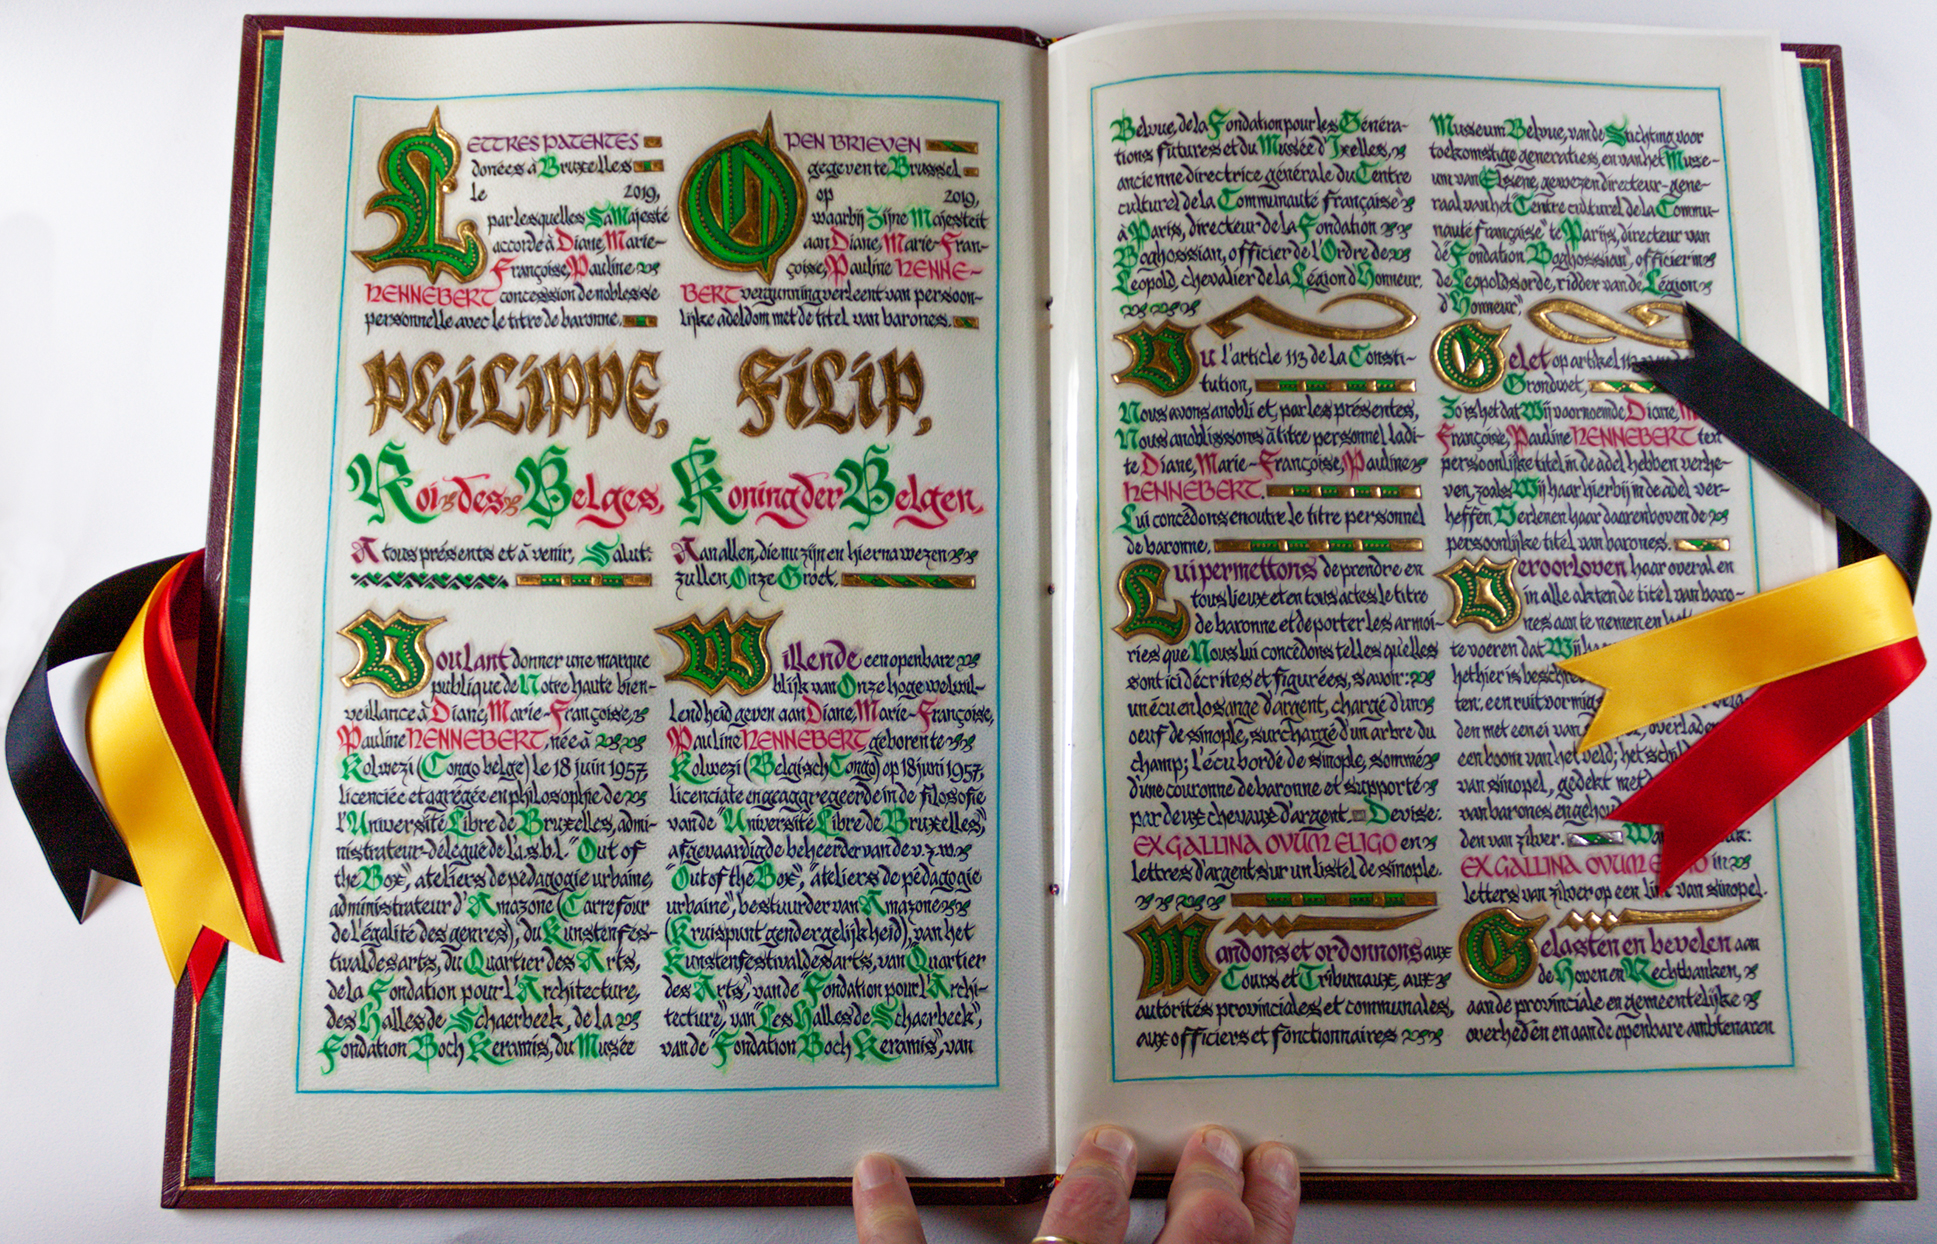 LETTRES PATENTES
données à Bruxelles
le 2019,
par lesquelles Sa Majesté
accorde à Diane, Marie-
Françoise, Pauline
HENNEBERT concession de noblesse
personnelle avec le titre de baronne.
PHILIPPE,
Roi des Belges,
A tous présents et à venir, Salut:
Voulant donner une marque
publique de Notre haute bien-
veillance à Diane, Marie-Françoise,
Pauline HENNEBERT, née à
Kolwezi (Congo belge) le 18 juin 1957,
licenciée et agrégée en philosophie de
l'Université Libre de Bruxelles, admi-
nistrateur-délégué de l'a.s.b.l. "Out of
the Box", ateliers de pédagogie urbaine,
administrateur d'Amazone (Carrefour
de l'égalité des genres), du Kunstenfes-
tivaldesarts, du Quartier des Arts,
de la Fondation pour l'Architecture,
des Halles de Schaerbeek, de la
Fondation Boch Keramis, du Musée
OPEN BRIEVEN
gegeven te Brussel
op 2019,
waarbij Zijne Majesteit
aan Diane, Marie-Fran-
çoise, Pauline HENNE-
BERT vergunning verleent van persoon-
lijke adeldom met de titel van barones.
FILIP,
Koning der Belgen,
Aan allen, die nu zijn en hierna wezen
zullen, Onze Groet.
Willende een openbare
blijk van Onze hoge welwil-
lendheid geven aan Diane, Marie-Françoise,
Pauline HENNEBERT geboren te
Kolwezi (Belgisch Congo) op 18 juni 1957,
licenciate en geaggregeerde in de filosofie
van de "Université Libre de Bruxelles",
afgevaardigde beheerder van de v.z.w.
"Out of the Box", "ateliers de pédagogie
urbaine", bestuurder van Amazone
(Kruispunt gendergelijkheid), van het
Kunstenfestivaldesarts, van "Quartier
des Arts", van de "Fondation pour l'Archi-
tecture", van "Les Halles de Schaerbeek",
van de "Fondation Boch Keramis", van
Belvue, de la Fondation pour les Généra-
tions Futures et du Musée d'Ixelles,
ancienne directrice générale du Centre
culturel de la Communauté française
à Paris, directeur de la Fondation
Boghossian, officier de l'Ordre de
Léopold, chevalier de la Légion d'Honneur.
Vu l'article 113 de la Consti-
tution,
Nous avons anobli et, par les présentes,
Nous anoblissons à titre personnel ladi-
te Diane, Marie-Françoise, Pauline
HENNEBERT.
Lui concédons en outre le titre personnel
de baronne,
Lui permettons de prendre en
tous lieux et en tous actes le titre
de baronne et de porter les armoi-
ries que Nous lui concédons telles qu'elles
sont ici décrites et figurées, savoir:
un écu en losange d'argent, chargé d'un
oeuf de sinople, surchargé d'un arbre du
champ; l'écu bordé de sinople, sommé
d'une couronne de baronne et supporté
par deux chevaux d'argent. Devise:
EX GALLINA OVUM ELIGO en
lettres d'argent sur un listel de sinople.
Mandons et ordonnons aux
Cours et Tribunaux, aux
autorités provinciales et communales,
aux officiers et fonctionnaires
Museum Belvue, van de Stichting voor
toekomstige generaties, en van het Muse-
um van Elsene, gewezen directeur-gene-
raal van het "Centre culturel de la Commu-
nauté française" te Parijs, directeur van
de "Fondation Boghossian", officier in
de Leopoldsorde, ridder van de "Légion
d'Honneur",
Gelet op artikel 113
Grondwet,
Zo is het dat Wij voornoemde Diane,
Françoise, Pauline HENNEBERT ten
persoonlijke titel in de adel hebben verhe-
ven, zoals Wij haar hierbij in de adel ver-
heffen. Verlenen haar daarenboven de
persoonlijke titel van barones.
Veroorloven haar overal en
in alle akten de titel van baro-
nes aan te nemen en het
te voeren dat Wij
het hier is
ten, een ruitvormig
den met een ei van overladen
een boom van het veld; het schild
van sinopel, gedekt met
van barones en
den van zilver.
EX GALLINA OVUM in
letters van zilver op een van sinopel.
Gelasten en bevelen aan
de Hoven en Rechtbanken,
aan de provinciale en gemeentelijke
overheden en aan de openbare ambtenaren